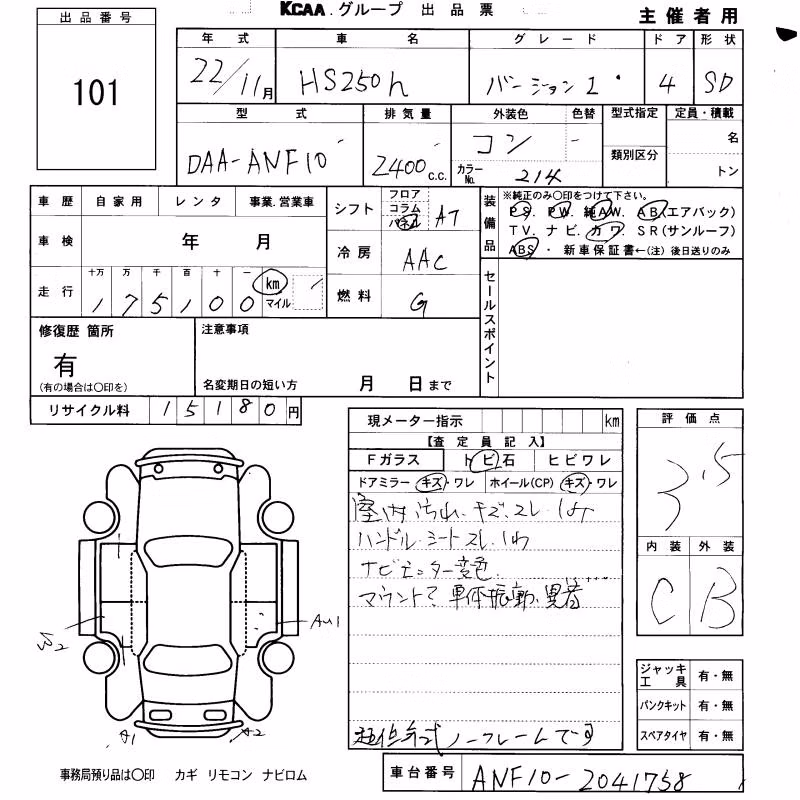 KCAA.グループ 出品票
主催者用
出品番号
101
年式 車名 グレード ドア 形状
22/11月 HS250h バージョンI 4 SD
型式 排気量 外装色 色替 型式指定 定員・積載
類別区分
DAA-ANF10 2400 C.C. コン - 名
カラーNo. 214 トン
車歴 自家用 レンタ 事業.営業車
車検 年 月
走行 十万 万 千 百 十 一
1 7 5 1 0 0 km マイル
シフト フロア コラム パネル AT
冷房 AAC
燃料 G
装備品
※純正のみ○印をつけて下さい。
PS. PW. 純AW. AB(エアバック)
TV. ナビ. カワ. SR(サンルーフ)
ABS・ 新車保証書←(注) 後日送りのみ
セールスポイント
修復歴 箇所
有
(有の場合は○印を)
注意事項
名変期日の短い方 月 日まで
リサイクル料 15180円
現メーター指示 km
【査定員記入】
Fガラス トビ石 ヒビワレ
ドアミラー キズ・ワレ ホイール(CP) キズ・ワレ
ハンドル.シートスレ.シワ
ナビモニター変色.
マウント? 車体振動、異音
ノーフレームです
評価点
3.5
内装 外装
C B
ジャッキ工具 有・無
パンクキット 有・無
スペアタイヤ 有・無
W2
AU1
A1 A2
事務局預り品は○印 カギ リモコン ナビロム
車台番号 ANF10-2041758